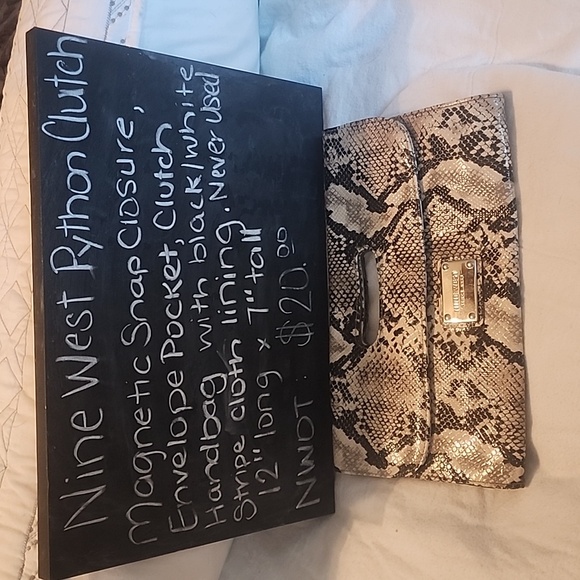 Nine West Python Clutch
Magnetic Snap Closure,
Envelope Pocket, Clutch
Handbag with black/white
Stripe cloth lining. Never Used
12" long x 7" tall
NWOT: $20.00
NINE WEST